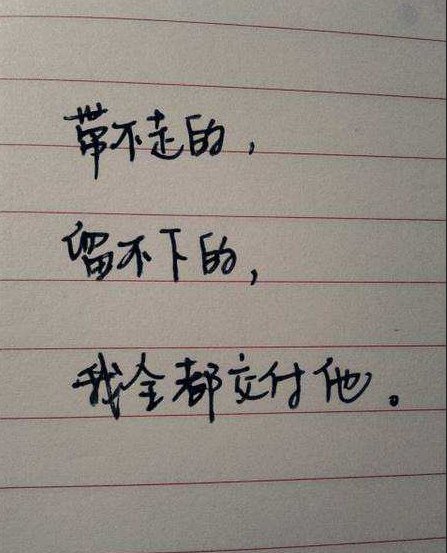 带不走的，
留不下的，
我全都交付他。